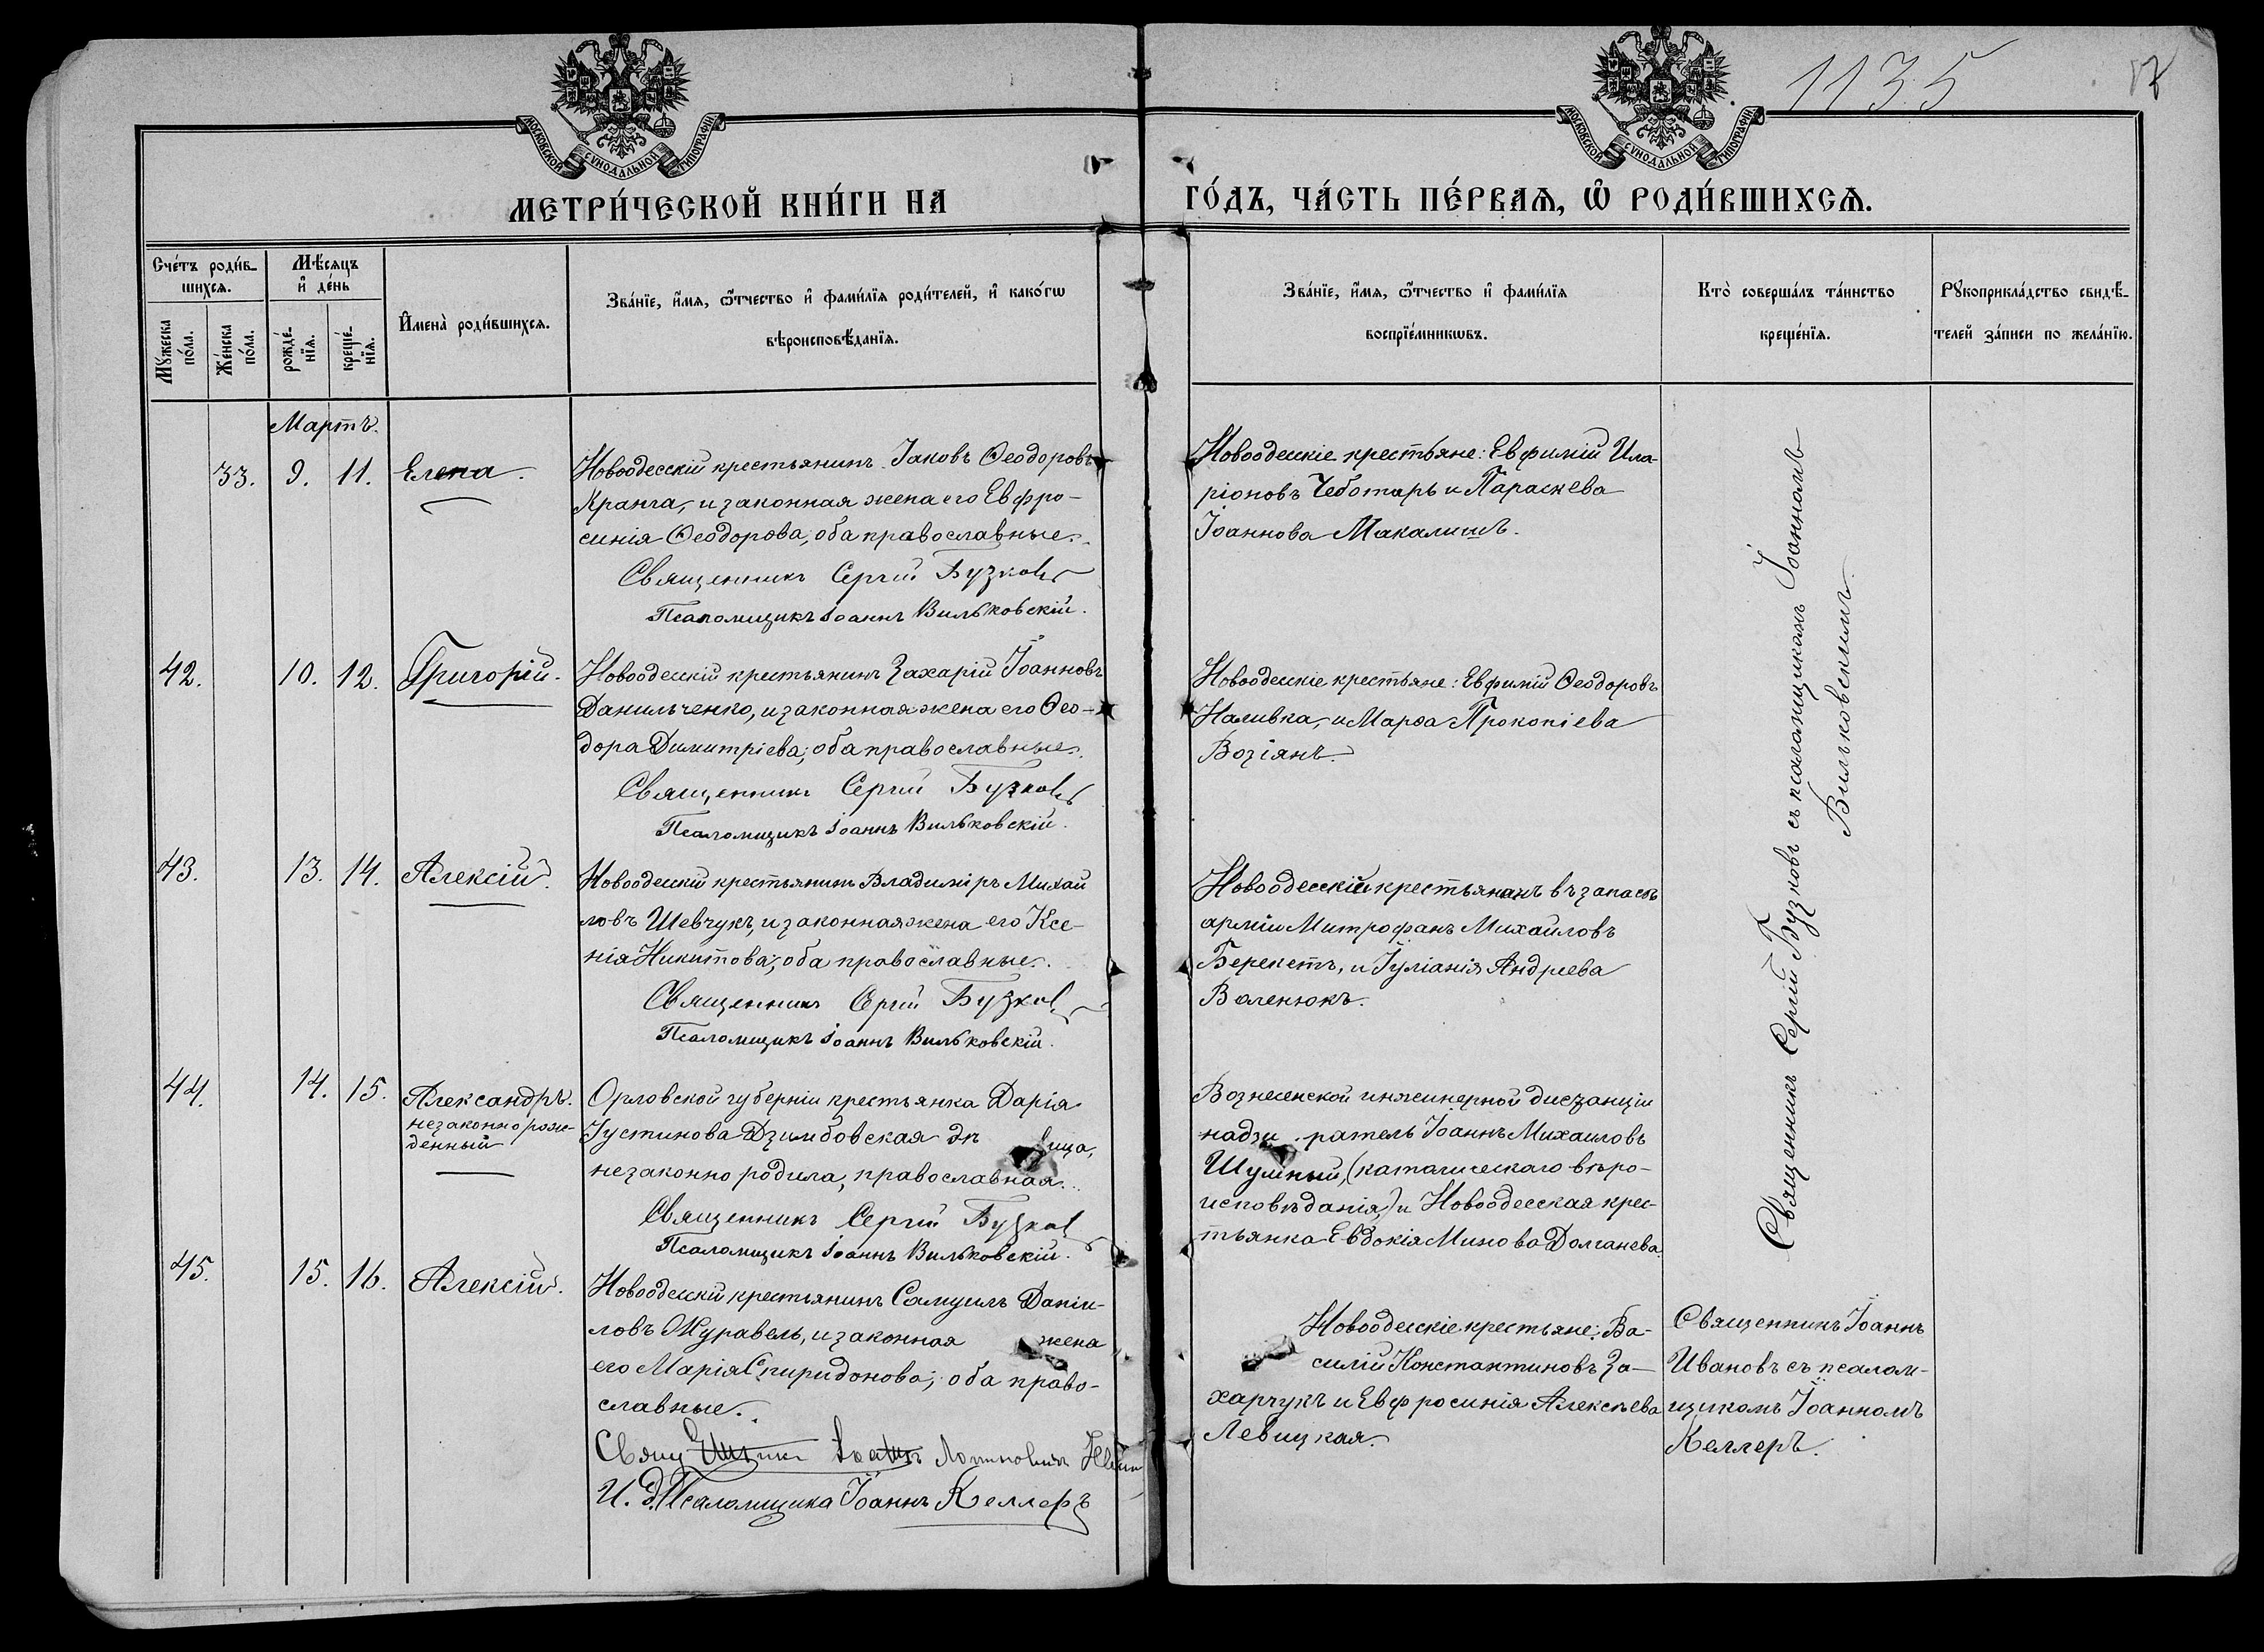 1135
МОСКОВСКОЙ СѴНОДАЛЬНОЙ ТИПОГРАФІИ
МОСКОВСКОЙ СѴНОДАЛЬНОЙ ТИПОГРАФІИ
МЕТРИ́ЧЕСКОЙ КНИ́ГИ НА
ГО́ДЪ, ЧА́СТЬ ПЕ́РВАѦ, Ѽ РОДИ́ВШИХСѦ.
Сче́тъ роди́в-
шихсѧ.
Мѣ́сѧцъ
и҆ де́нь
Мꙋ́жеска
по́ла.
Же́нска
по́ла.
рожде́-
нїѧ.
креще́-
нїѧ.
И҆мена̀ роди́вшихсѧ.
Зва́нїе, и҆́мѧ, ѻ҆́тчество и҆ фами́лїѧ роди́телей, и҆ како́гѡ
вѣроисповѣ́данїѧ.
Зва́нїе, и҆́мѧ, ѻ҆́тчество и҆ фами́лїѧ
воспрїе́мникѡвъ.
Кто̀ соверша́лъ та́инство
креще́нїѧ.
Рꙋкоприкла́дство свидѣ́-
телей за́писи по жела́нїю.
Мартъ.
33. 9. 11. Елена.
Новоодесскій крестьянинъ Іаковъ Ѳеодоровъ
Кранга, и законная жена его Евфро-
синія Ѳеодорова, оба православные.
Священникъ Сергій Бузковъ
Псаломщикъ Іоаннъ Вильковскій.
Новоодесскіе крестьяне: Евфимій Ила-
ріоновъ Чеботарь и Параскева
Іоаннова Макалишъ.
42. 10. 12. Григорій.
Новоодесскій крестьянинъ Захарій Іоанновъ
Данильченко, и законная жена его Ѳео-
дора Димитріева; оба православные.
Священникъ Сергій Бузковъ
Псаломщикъ Іоаннъ Вильковскій.
Новоодесскіе крестьяне: Евфимій Ѳеодоровъ
Наливка, и Марѳа Прокопіева
Возіянъ.
43. 13. 14. Алексій.
Новоодесскій крестьянинъ Владиміръ Михай
ловъ Шевчукъ, и законная жена его Ксе-
нія Никитова; оба православные.
Священникъ Сергій Бузковъ
Псаломщикъ Іоаннъ Вильковскій.
Новоодесскій крестьянинъ въ запасѣ
арміи Митрофанъ Михайловъ
Берекетъ, и Іуліанія Андреева
Воленюкъ.
44. 14. 15. Александръ.
незаконнорож-
денный
Орловской губерніи крестьянка Дарія
Іустинова Дзимбовская дѣ вица,
незаконно родила, православная.
Священникъ Сергій Бузковъ
Псаломщикъ Іоаннъ Вильковскій.
Вознесенской инженерной дистанціи
надзи ратель Іоаннъ Михаиловъ
Шумный, (католическаго вѣро-
исповѣданія,) и Новоодесская крес-
тьянка Евдокія Минова Долганева.
45. 15. 16. Алексій.
Новоодесскій крестьянинъ Самуилъ Даніи-
ловъ Журавель, и законная жена
его Марія Спиридонова; оба право-
славные.
Свящ
И. д. Псаломщика Іоаннъ Келлеръ
Новоодесскіе крестьяне: Ва-
силій Константиновъ За-
харчукъ и Евфросинія Алексѣева
Левицкая.
Священникъ Сергій Бузковъ съ псаломщикомъ Іоанномъ
Вильковскимъ.
Священникъ Іоаннъ
Ивановъ съ псалом-
щикомъ Іоанномъ
Келлеръ.